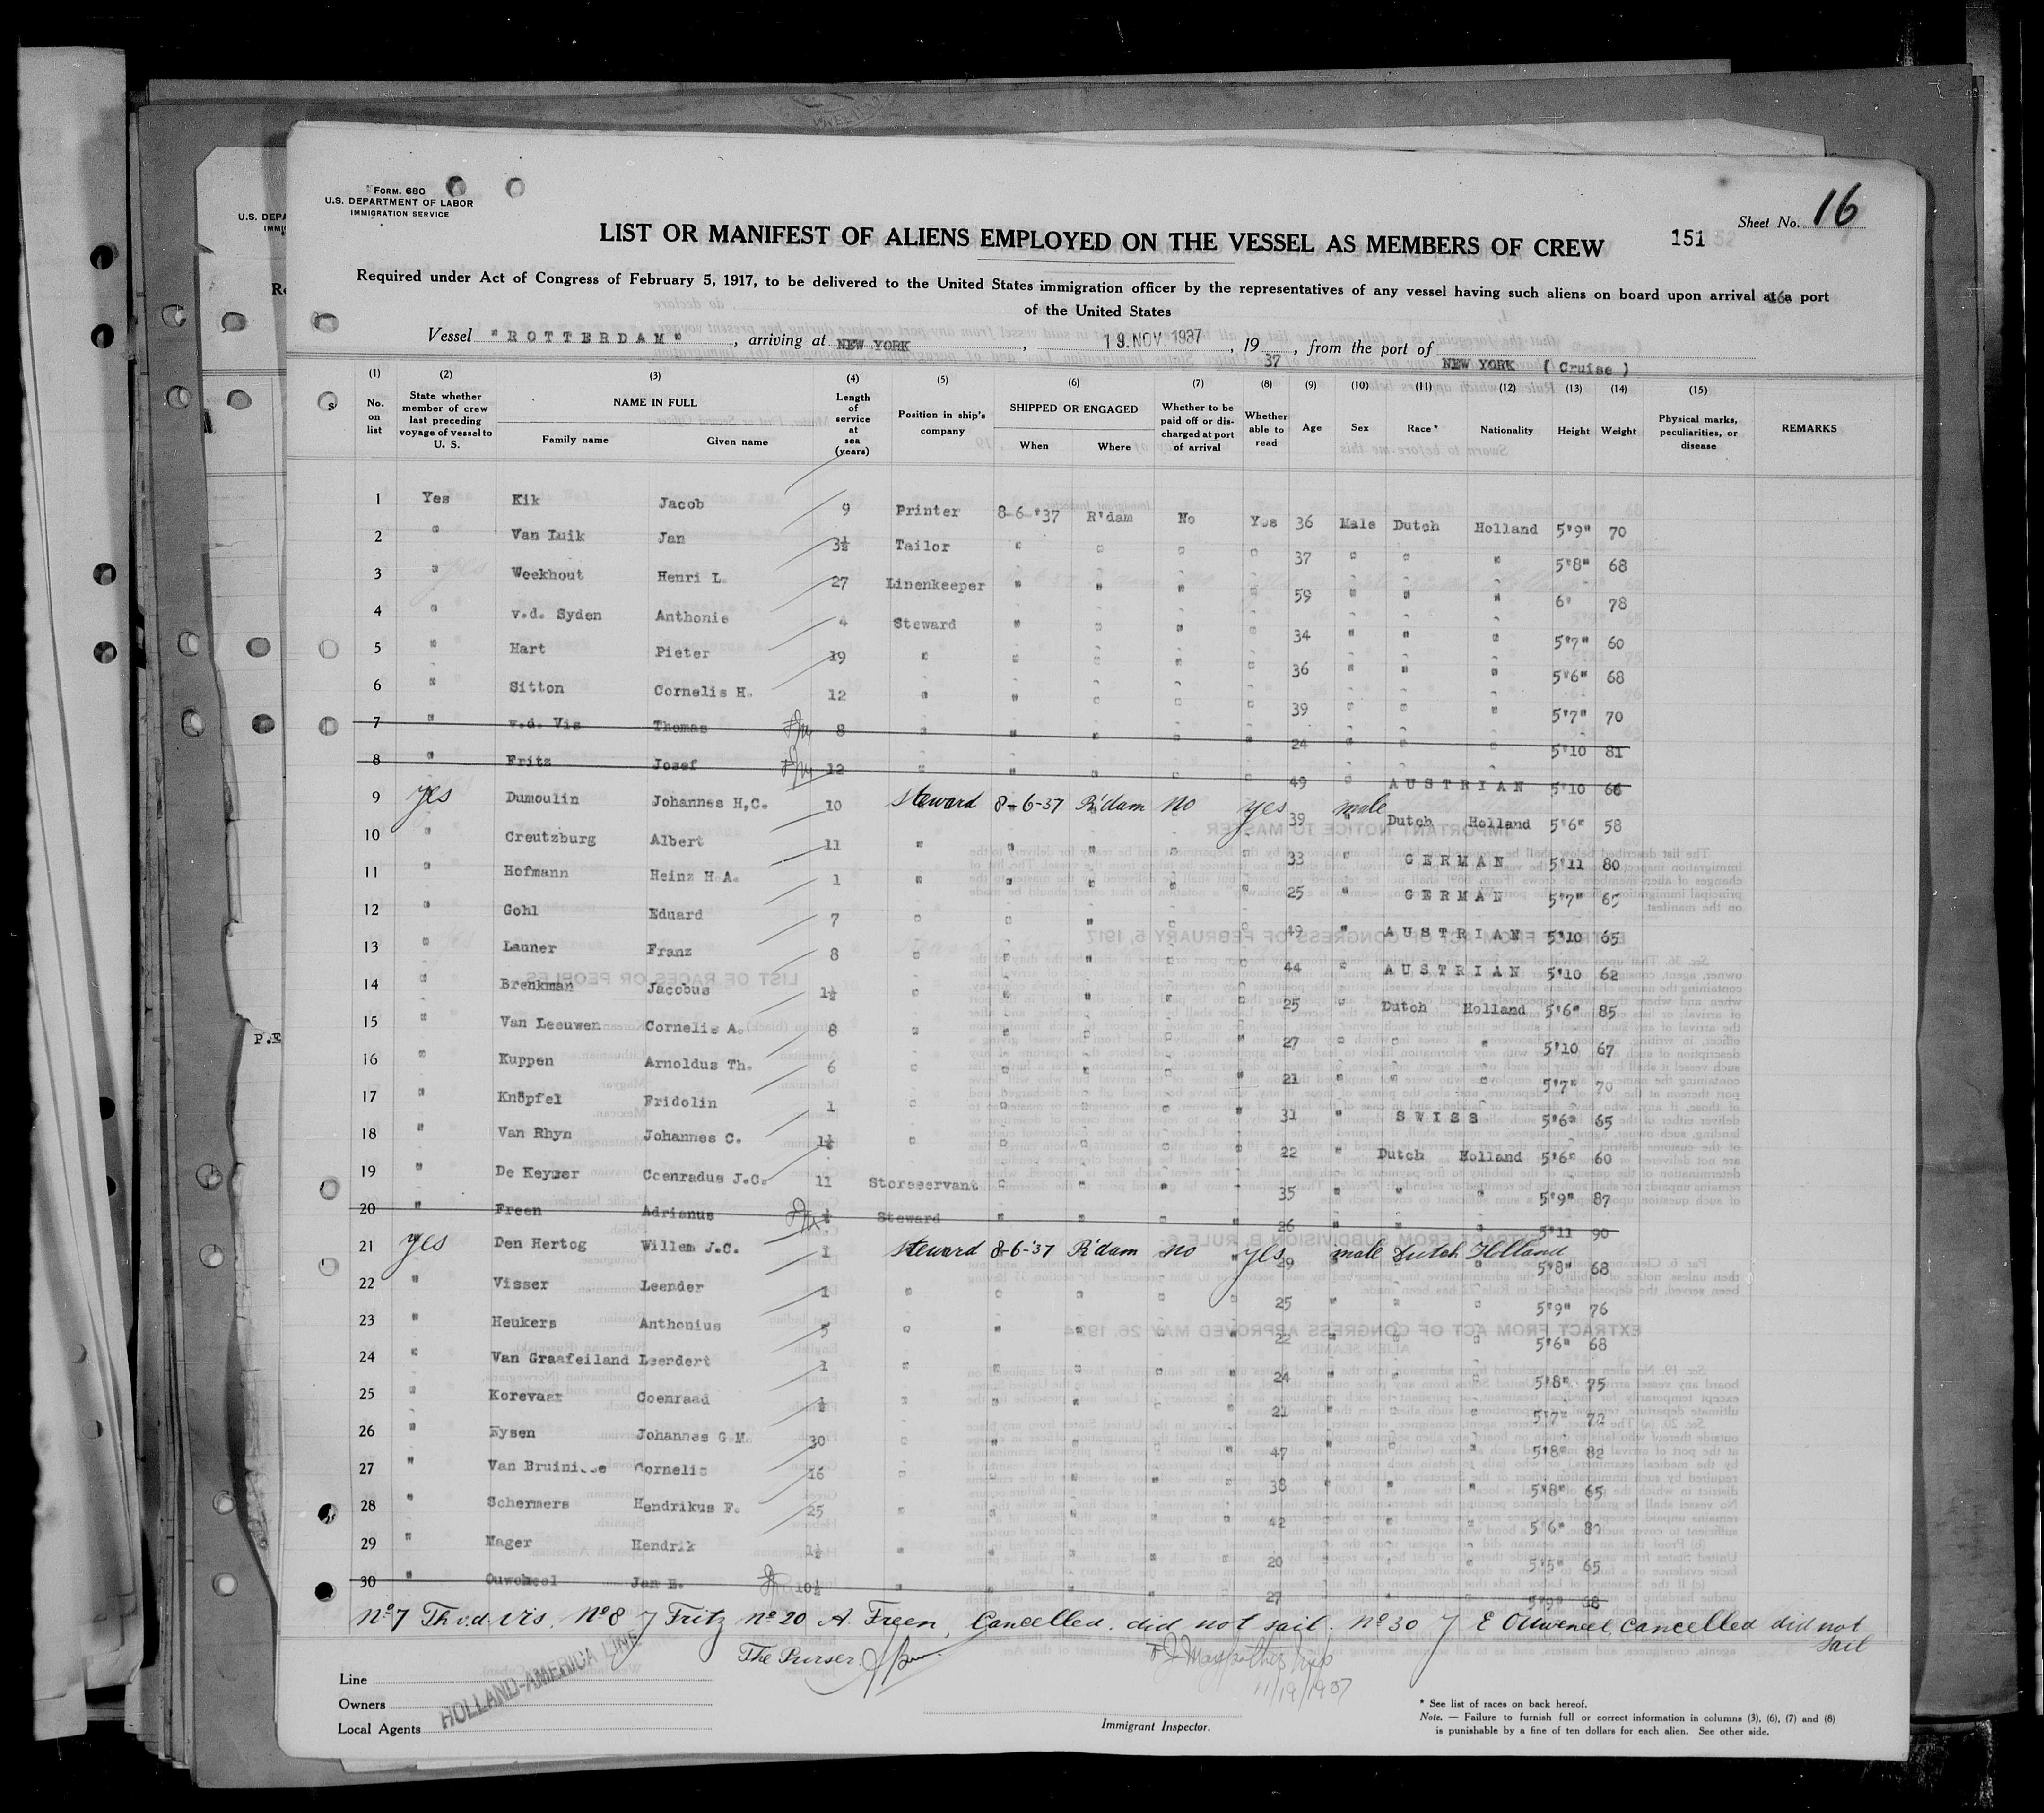 FORM. 680
U.S. DEPARTMENT OF LABOR
IMMIGRATION SERVICE
Sheet No. 16
151
LIST OR MANIFEST OF ALIENS EMPLOYED ON THE VESSEL AS MEMBERS OF CREW
Required under Act of Congress of February 5, 1917, to be delivered to the United States immigration officer by the representatives of any vessel having such aliens on board upon arrival at a port
of the United States
Vessel "ROTTERDAM", arriving at NEW YORK, 19 NOV 1937, 19 37, from the port of NEW YORK (Cruise)
(1) (2) (3) (4) (5) (6) (7) (8) (9) (10) (11) (12) (13) (14) (15)
No. on list State whether member of crew last preceding voyage of vessel to U. S. NAME IN FULL Family name Given name Length of service at sea (years) Position in ship's company SHIPPED OR ENGAGED When Where Whether to be paid off or discharged at port of arrival Whether able to read Age Sex Race* Nationality Height Weight Physical marks, peculiarities, or disease REMARKS
1 Yes Kik Jacob 9 Printer 8-6-'37 R'dam No Yes 36 Male Dutch Holland 5'9" 70
2 " Van Luik Jan 3½ Tailor " " " " 37 " " " 5'8" 68
3 " Weekhout Henri L. 27 Linenkeeper " " " " 59 " " " 6' 78
4 " v.d. Syden Anthonie 4 Steward " " " " 34 " " " 5'7" 60
5 " Hart Pieter 19 " " " " " 36 " " " 5'6" 68
6 " Sitton Cornelis H. 12 " " " " " 39 " " " 5'7" 70
7 " v.d. Vis Thomas 8 " " " " " 24 " " " 5'10 81
8 " Fritz Josef 12 " " " " " 49 " AUSTRIAN 5'10 66
9 yes Dumoulin Johannes H,C. 10 steward 8-6-37 R'dam no yes 39 male Dutch Holland 5'6" 58
10 " Creutzburg Albert 11 " " " " " 33 " GERMAN 5'11 80
11 " Hofmann Heinz H.A. 1 " " " " " 25 " GERMAN 5'7" 65
12 " Gohl Eduard 7 " " " " " 49 " AUSTRIAN 5'10 65
13 " Launer Franz 8 " " " " " 44 " AUSTRIAN 5'10 62
14 " Brenkman Jacobus 1½ " " " " " 25 " Dutch Holland 5'6" 85
15 " Van Leeuwen Cornelis A. 8 " " " " " 27 " " " 5'10 67
16 " Kuppen Arnoldus Th. 6 " " " " " 21 " " " 5'7" 70
17 " Knöpfel Fridolin 1 " " " " " 31 " SWISS 5'6" 65
18 " Van Rhyn Johannes C. 1½ " " " " " 22 " Dutch Holland 5'6" 60
19 " De Keyzer Coenradus J.C. 11 Storeservant " " " " 35 " " " 5'9" 87
20 " Freen Adrianus Steward " " " " 26 " " " 5'11 90
21 yes Den Hertog Willem J.C. 1 steward 8-6-'37 R'dam no yes 29 male Dutch Holland 5'8" 68
22 " Visser Leender 1 " " " " " 25 " " " 5'9" 76
23 " Heukers Anthonius 5 " " " " " 22 " " " 5'6" 68
24 " Van Graafeiland Leendert 1 " " " " " 24 " " " 5'8" 75
25 " Korevaar Coenraad ½ " " " " " 21 " " " 5'7" 72
26 " Nysen Johannes G.M. 30 " " " " " 47 " " " 5'8" 82
27 " Van Cornelis 16 " " " " " 38 " " " 5'8" 65
28 " Schermers Hendrikus F. 25 " " " " " 42 " " " 5'6" 80
29 " Mager Hendrik 1½ " " " " " 20 " " " 5'5" 65
30 " Jan E. 10½ " " " " " 27 " " " 5'9" 68
No 7 Th v.d. Vis. No 8 J Fritz No 20 A. Freen, Cancelled. did not sail. No 30 J E Ouweneel, cancelled did not
sail
The Purser
11/19/1937
Line
Owners
Local Agents
HOLLAND-AMERICA LINE
Immigrant Inspector.
* See list of races on back hereof.
Note. — Failure to furnish full or correct information in columns (3), (6), (7) and (8)
is punishable by a fine of ten dollars for each alien. See other side.